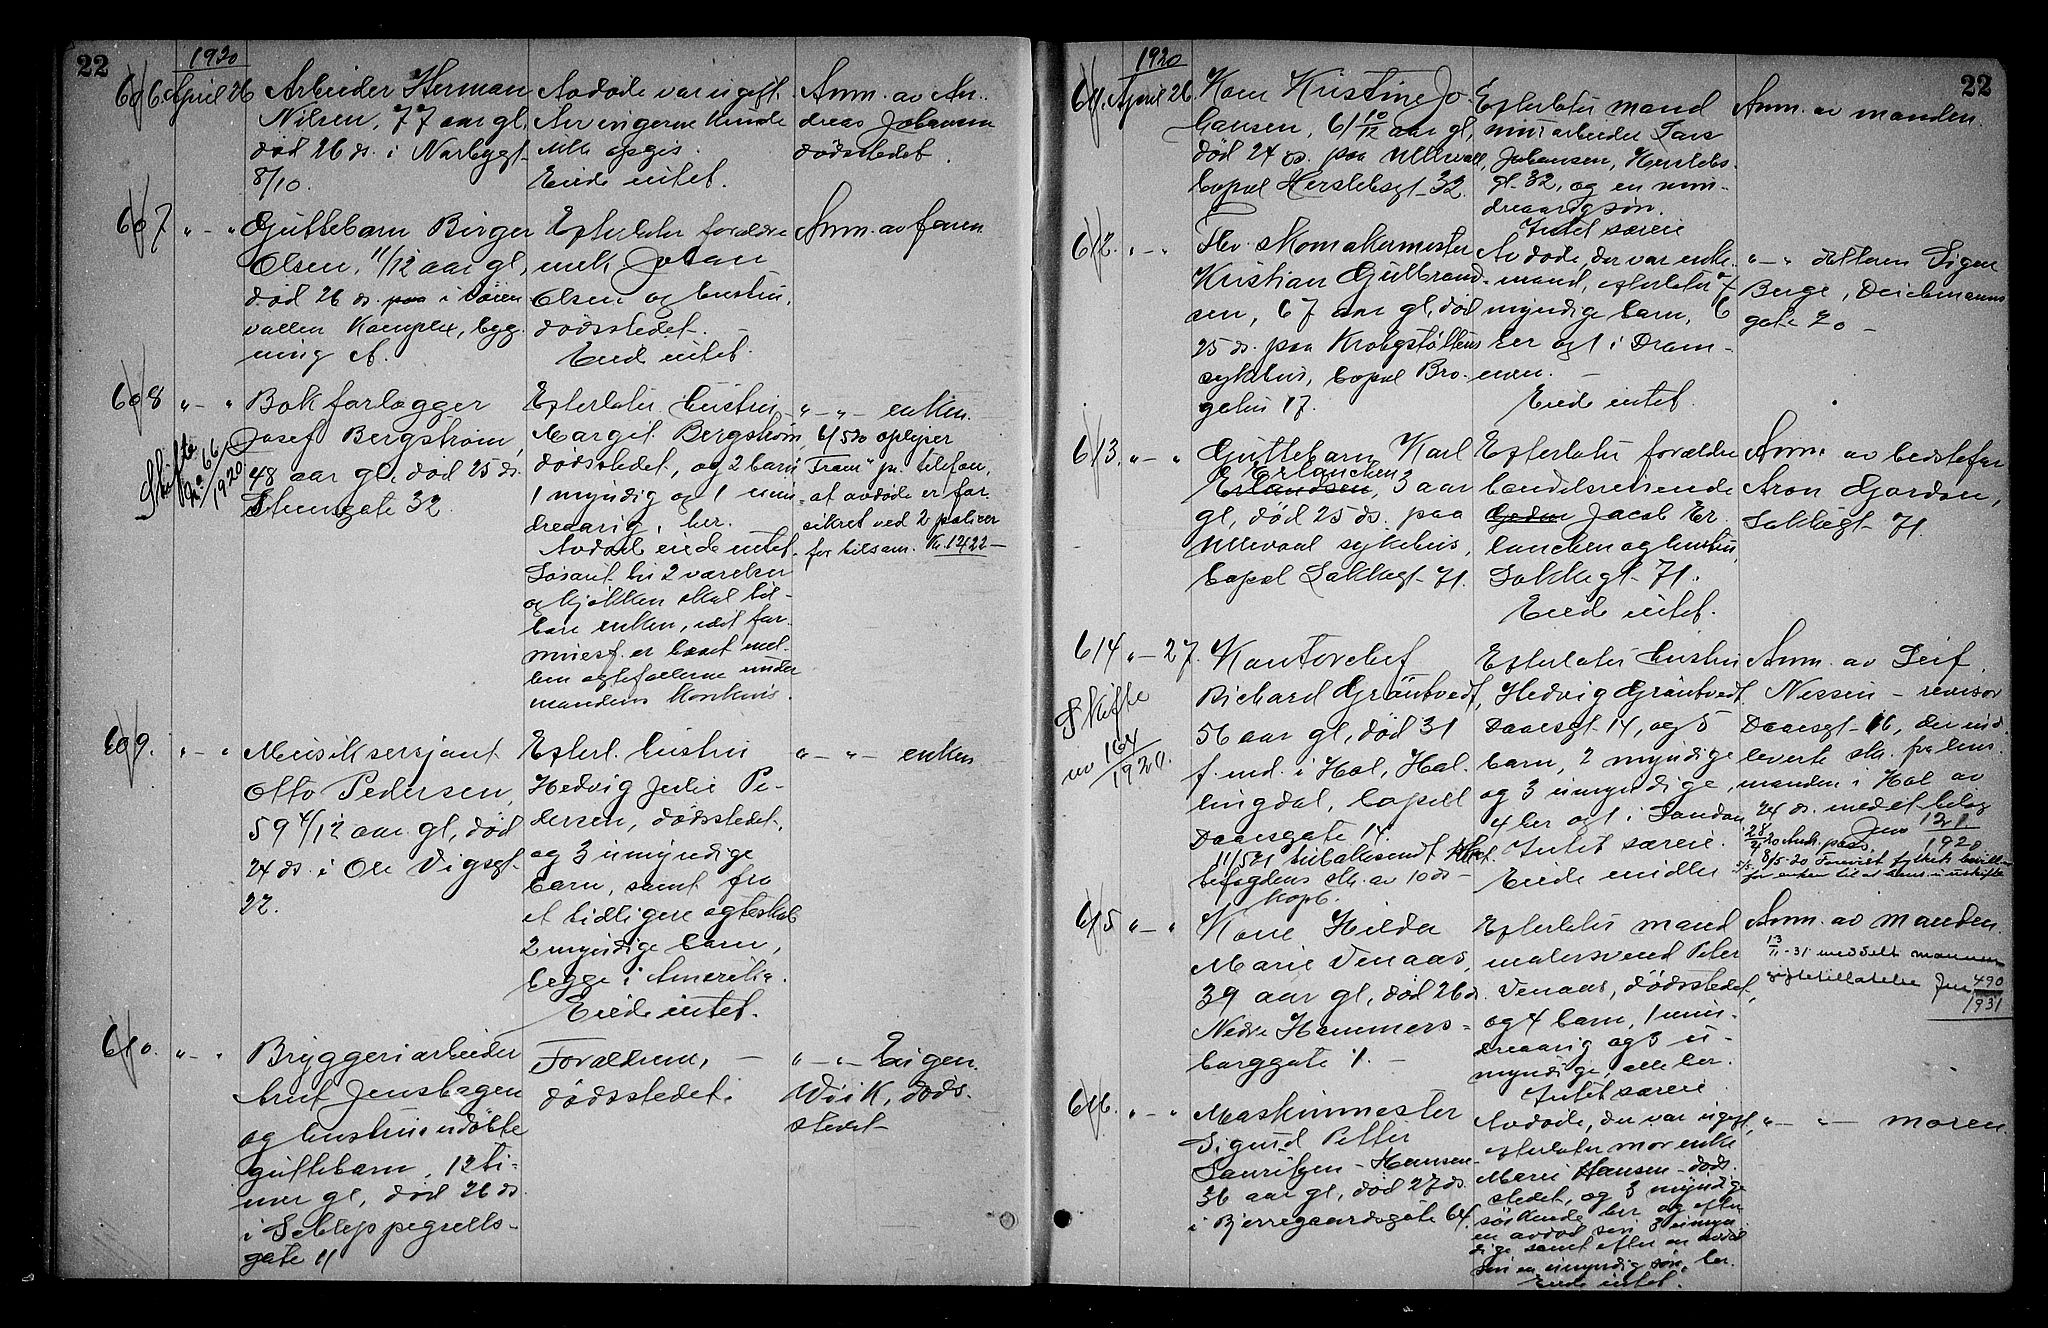 22
1920
606. April 26
Arbeider Herman
Nilsen, 77 aar gl,
død 26 ds. i Narbygt.
8/10.
Avdøde var ugift.
Arvingerne kunde
ikke opgis.
Eiede intet.
Anm. av An-
dreas Johansen
dødsstedet.
607 " - "
Guttebarn Birger
Olsen, 11/12 aar gl,
død 26 ds. paa i Løren
vallen Komplex, byg
ning A.
Efterlater forældre
Johan
Olsen og hustru,
dødsstedet.
Eied intet.
Anm. av faren
608 " - "
Skifte
No 66/1920
Bokforlægger
Josef Bergstrøm,
48 aar gl, død 25 ds.
Stensgate 32.
Efterlater hustru
Margit Bergstrøm
dødsstedet, og 2 barn
1 myndig og 1 min-
dreaarig, her.
Avdøde eiede intet.
Løsøret til 2 værelser
og kjøkken skal til-
høre enken, idet for-
muesf. er lavet mel-
lem ægtefællerne under
mandens konkurs.
" - " - enken.
6/5 20 oplyser
"Fram" pr. telefon,
at avdøde er for-
sikret ved 2 policer
for tilsam. Kr. 12422 -
609. " - "
Musiksersjant
Otto Pedersen,
59 4/12 aar gl, død
24 ds. i Ole Vigsgt.
22.
Efterl. hustru
Hedvig Julie Pe-
dersen, dødsstedet,
og 3 umyndige
barn, samt fra
et tidligere egteskab
2 myndige barn,
begge i Amerika.
Eiede intet.
" - " - enken
610. " - "
Bryggeriarbeider
Arnt Jenshagen
og hustrus udøbte
guttebarn, 12 ti-
mer gl, død 26 ds.
i Schleppegrells-
gate 11
Forældrene, -
dødsstedet.
" - " Eugen
Wiik, døds-
stedet
22
1920
611. April 26.
Kone Kristine Jo-
hansen, 61 10/12 aar gl,
død 24 ds. paa Ullevaal,
bopæl Herslebsgt. 32.
Efterlater mand
murarbeider Lars
Johansen, Herslebs-
gt. 32, og en min-
dreaarig søn.
Intet særeie
Anm. av manden.
612. " - "
Fhv. skomakermester
Kristian Gulbrand-
sen, 67 aar gl, død
25 ds. paa Krohgstøttens
sykehus, bopæl Bro-
gehus 17.
Avdøde, der var enke-
mand, efterlater 7
myndige barn, 6
her og 1 i Dram-
men. -
Eiede intet.
" - " datteren Signe
Berge, Deichmanns
gate 20 -
613. " - "
Guttebarn Karl
Erlanchen
Erlandsen, 3 aar
gl, død 25 ds. paa
Ullevaal sykehus,
bopæl Lakkegt. 71.
Efterlater forældre
handelsreisende
Jacob Er-
lanchen og hustru,
Lakkegt. 71.
Eiede intet.
Anm. av bedstefar
Aron Gordon,
Lakkegt. 71.
614 " - 27.
Skifte
no 164/1920.
Kontorchef
Richard Grøntvedt,
56 aar gl, død 31
f. md. i Hol, Hal-
lingdal, bopæl
Daasgate 14.
11/5 21 tilbakesendt
befogdens sk. av 10 ds -
Kopb.
Efterlater hustru
Hedvig Grøntvedt,
Daasgt. 14, og 5
barn, 2 myndige
og 3 umyndige,
4 her og 1 i London.
Intet særeie.
Eiede midler
Anm. av Leif
Nissen - revisor
Daasgt. 16, der ind-
leverte sk. fra lens-
manden i Hol av
24 ds. med et bilag
Jnr 121/1920
615 " - "
Kone Hilda
Marie Venaas,
39 aar gl, død 26 ds.
Nedre Hammers-
borggate 1. -
Efterlater mand
malersvend Peter
Venaas, dødsstedet,
og 4 barn, 1 min-
dreaarig og 3 u-
myndige, alle her.
Intet særeie
Anm. av manden.
13/11 - 31 meddelt mannen
giftetillatelse Jnr 490/1931
616. " - "
Maskinmester
Sigurd Petter
Lauritzen - Hansen
36 aar gl, død 27 ds
i Bjerregaardsgate 64.
Avdøde, der var ugift,
efterlater mor enke
Marie Hansen - døds-
stedet, og 3 myndige
søskende her og efter
en avdød søn 3 umyn-
dige samt efter en avdød
søn en umyndig søn, her.
Eiede intet.
" - " - moren.